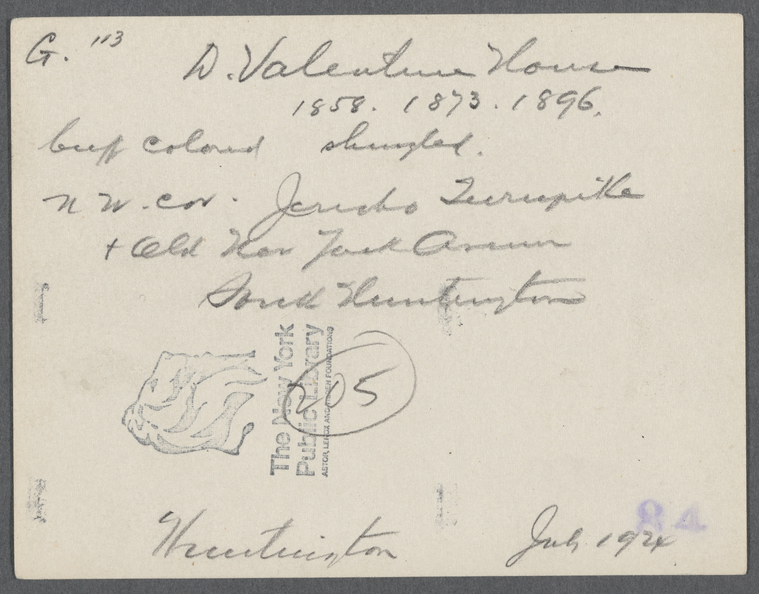 G. 113
D. Valentine House
1858. 1873. 1896.
buff colored shingled.
N W. cor. Jericho Turnpike
+ Old New York Avenue
South Huntington
The New York
Public Library
ASTOR, LENOX AND TILDEN FOUNDATIONS
205
84
Huntington July 192